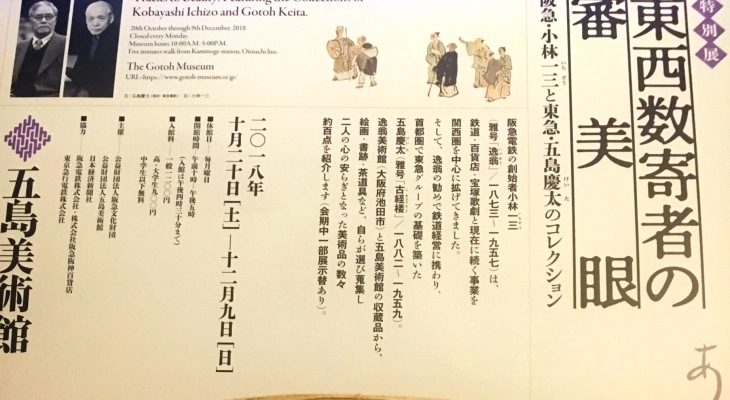 特別展
東西数寄者の
審美眼
阪急・小林一三と東急・五島慶太のコレクション
Kobayashi Ichizo and Gotoh Keita.
20th October through 9th December, 2018
Closed every Monday
Museum hours 10:00A.M.-5:00P.M.
Five minutes walk from Kaminoge station, Oimachi line.
The Gotoh Museum
URL:https://www.gotoh-museum.or.jp/
阪急電鉄の創始者小林一三
〔雅号「逸翁」/一八七三〜一九五七〕は、
鉄道・百貨店・宝塚歌劇と現在に続く事業を
関西圏を中心に拡げてきました。
そして、逸翁の勧めで鉄道経営に携わり、
首都圏で東急グループの基礎を築いた
五島慶太〔雅号「古経楼」/一八八二〜一九五九〕。
逸翁美術館(大阪府池田市)と五島美術館の収蔵品から、
絵画・書跡・茶道具など、自らが選び蒐集し
二人の心の安らぎとなった美術品の数々
約百点を紹介します(会期中一部展示替あり)。
二〇一八年
十月二十日[土]―十二月九日[日]
■休館日 毎月曜日
■開館時間 午前十時―午後五時
(入館は午後四時三十分まで)
■入館料 一般一二〇〇円
高・大学生九〇〇円
中学生以下無料
■主催 公益財団法人阪急文化財団
公益財団法人五島美術館
日本経済新聞社
■協力 阪急電鉄株式会社・株式会社阪急阪神百貨店
東京急行電鉄株式会社
五島美術館
あ